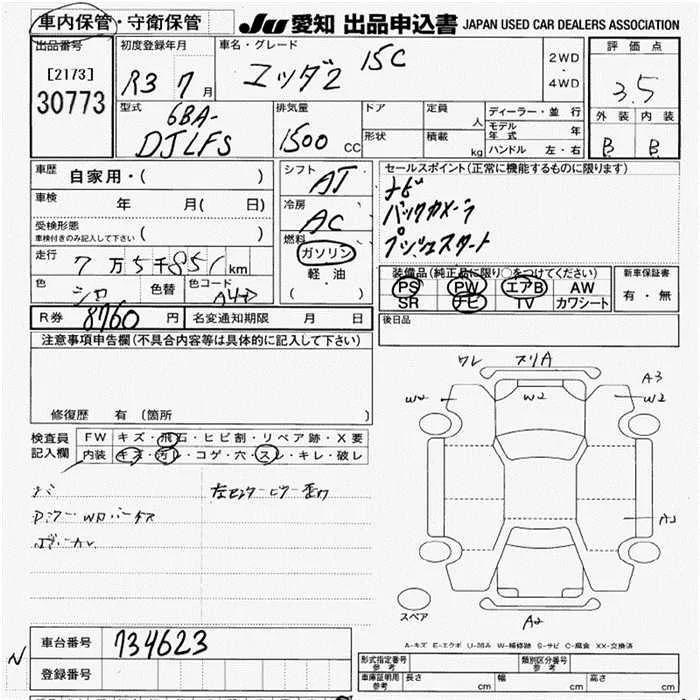 車内保管・守衛保管
JU 愛知 出品申込書 JAPAN USED CAR DEALERS ASSOCIATION
出品番号
[2173]
30773
初度登録年月
R3 7 月
車名・グレード
15C
2WD
・
4WD
評価点
3.5
外装 内装
B B
型式
6BA-
DJLFS
排気量
1500 CC
ドア
定員
人
形状
積載
kg
ディーラー・並行
モデル年式 年
ハンドル 左・右
車歴
自家用・( )
車検
年 月( 日)
受検形態
車検付きのみ記入して下さい ( )
走行
7 万 5 千 851 km
色
シロ
色替
色コード
A4D
シフト
AT
冷房
AC
燃料
ガソリン
軽油
( )
セールスポイント(正常に機能するものに限ります)
ナビ
バックカメラ
プッシュスタート
装備品(純正品に限り○をつけてください)
PS PW エアB AW
SR ナビ TV カワシート
新車保証書
有・無
R券 8760 円
名変通知期限 月 日
後日品
注意事項申告欄(不具合内容等は具体的に記入して下さい)
修復歴 有(箇所 )
検査員記入欄
FW キズ・飛石・ヒビ割・リペア跡・X要
内装 キズ・汚レ・コゲ・穴・スレ・キレ・破レ
ワレ スリA
W2 W2 W2
A3
A2
スペア
A-キズ E-エクボ U-凹み W-補修跡 S-サビ C-腐食 XX-交換済
車台番号 134623
N
登録番号
形式指定番号 参考
類別区分番号 参考
車庫証明用 参考
長さ cm
幅 cm
高さ cm